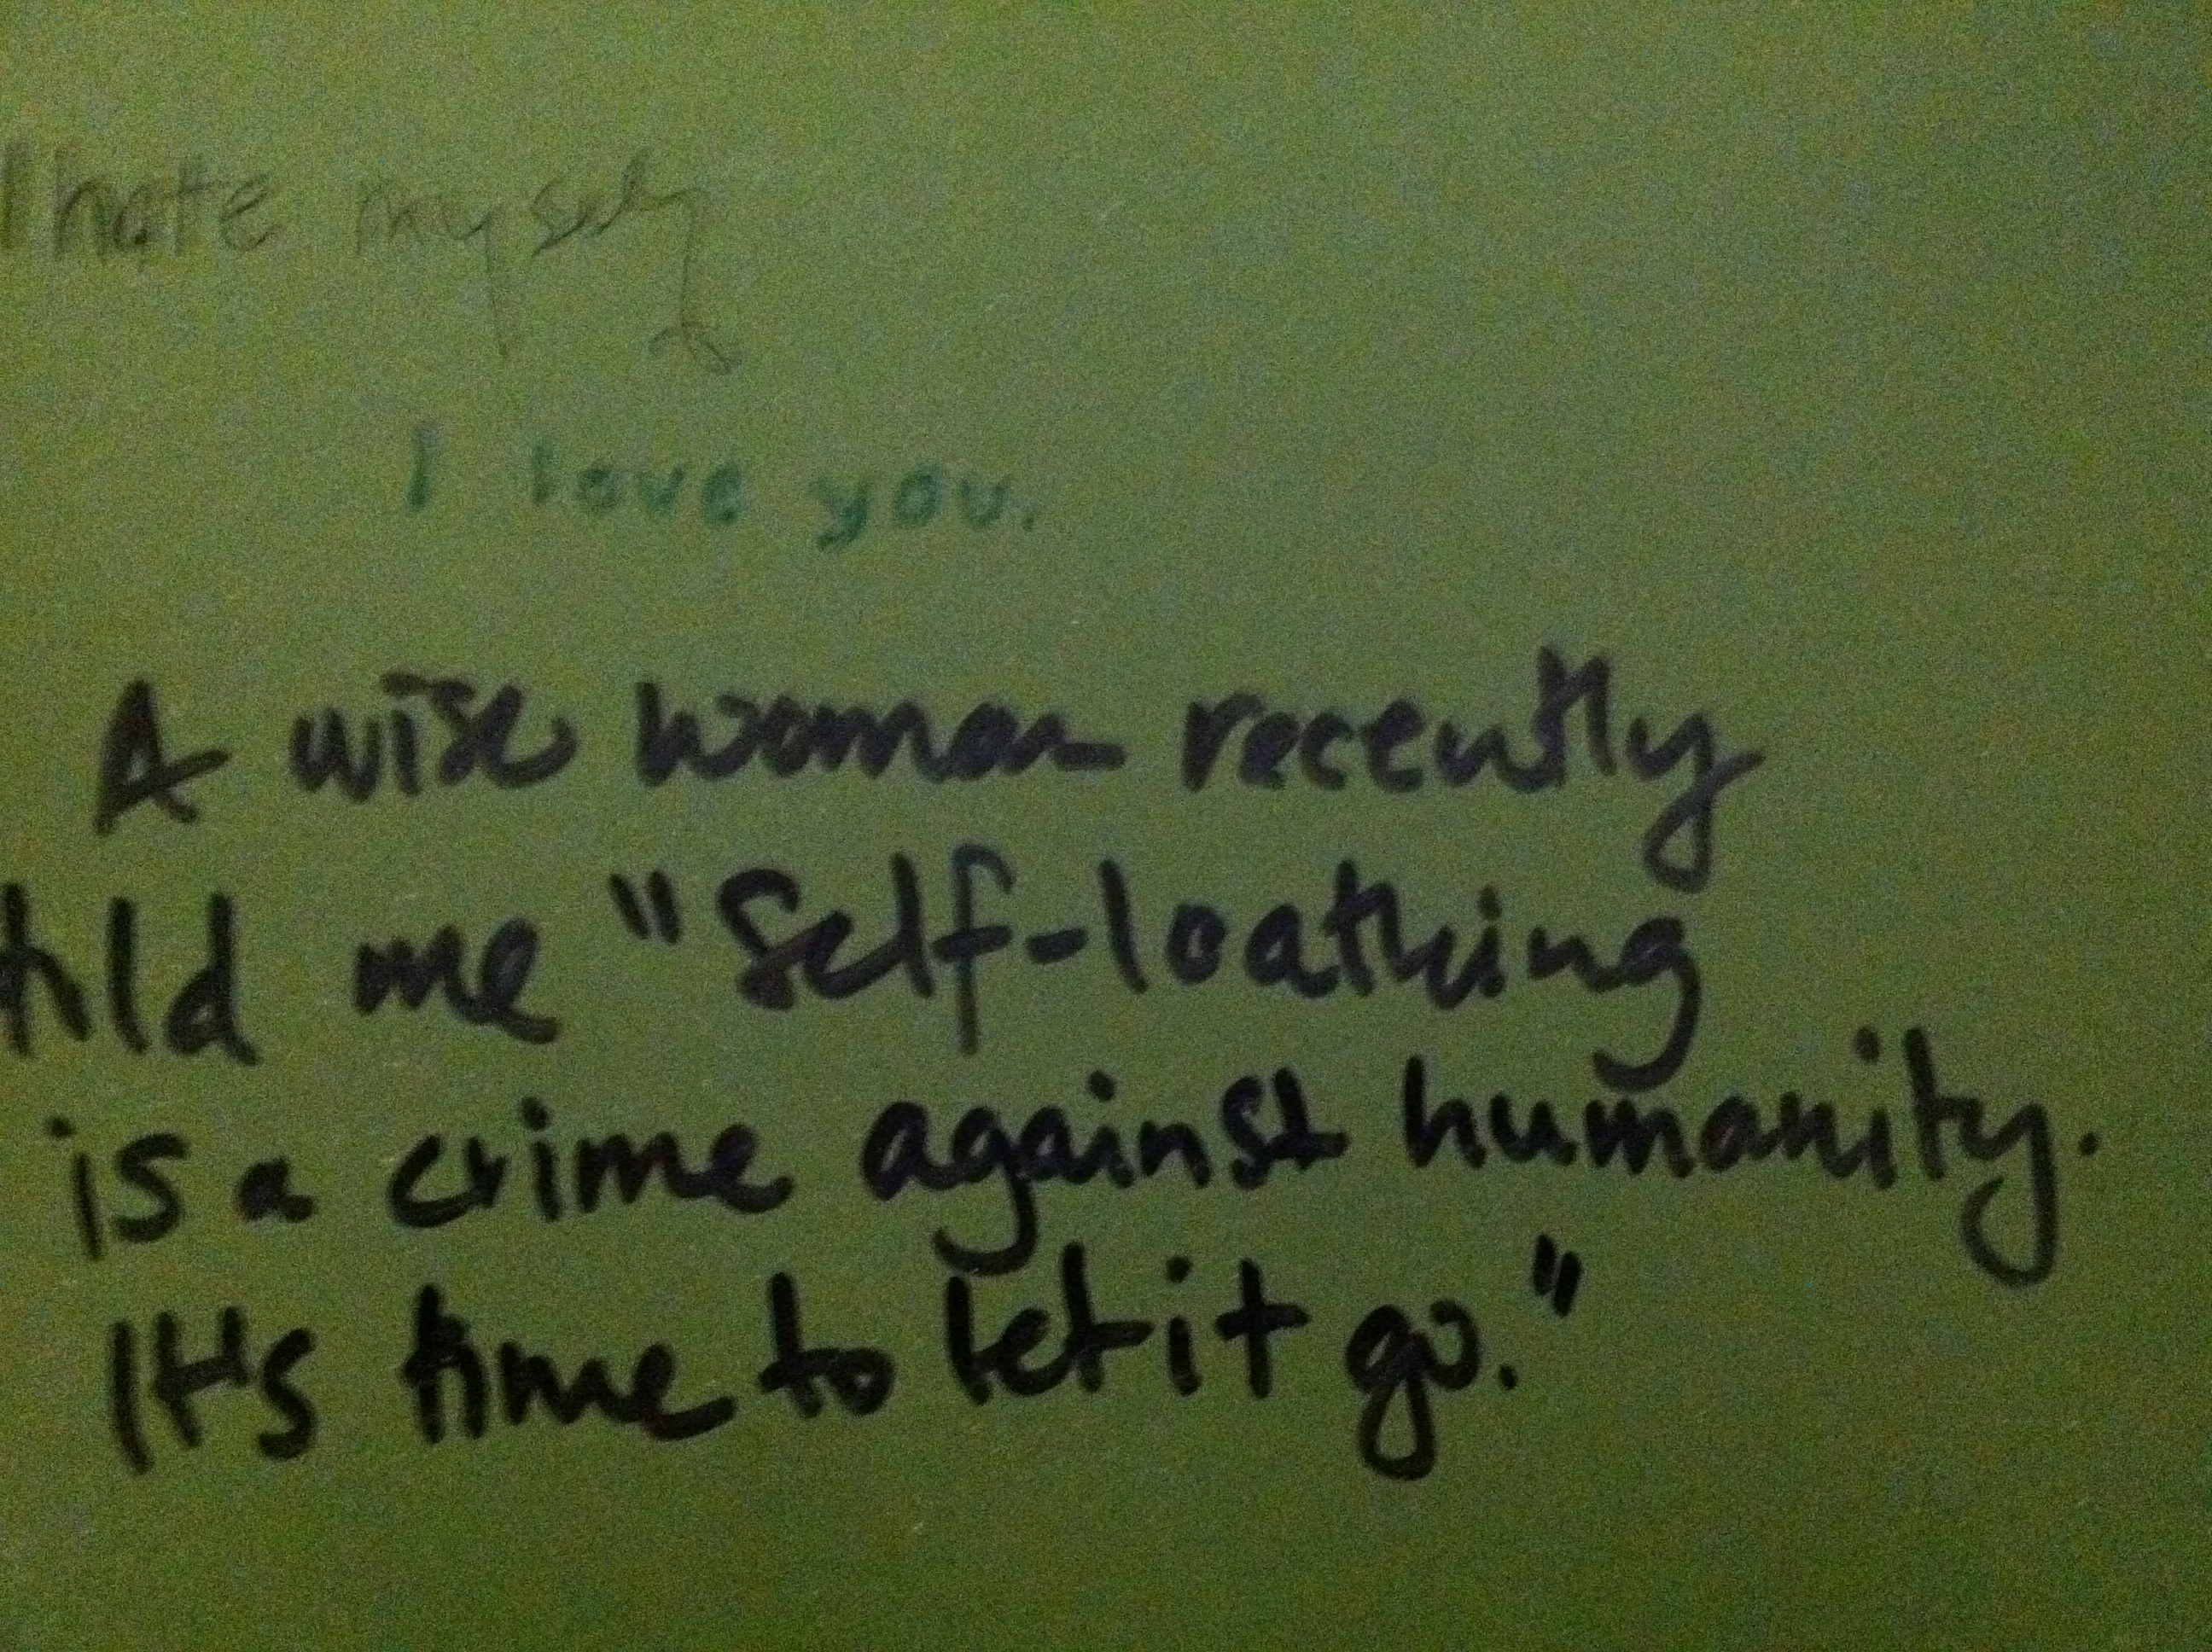 I hate myself
I love you.
A wise woman recently
told me "Self-loathing
is a crime against humanity.
It's time to let it go."